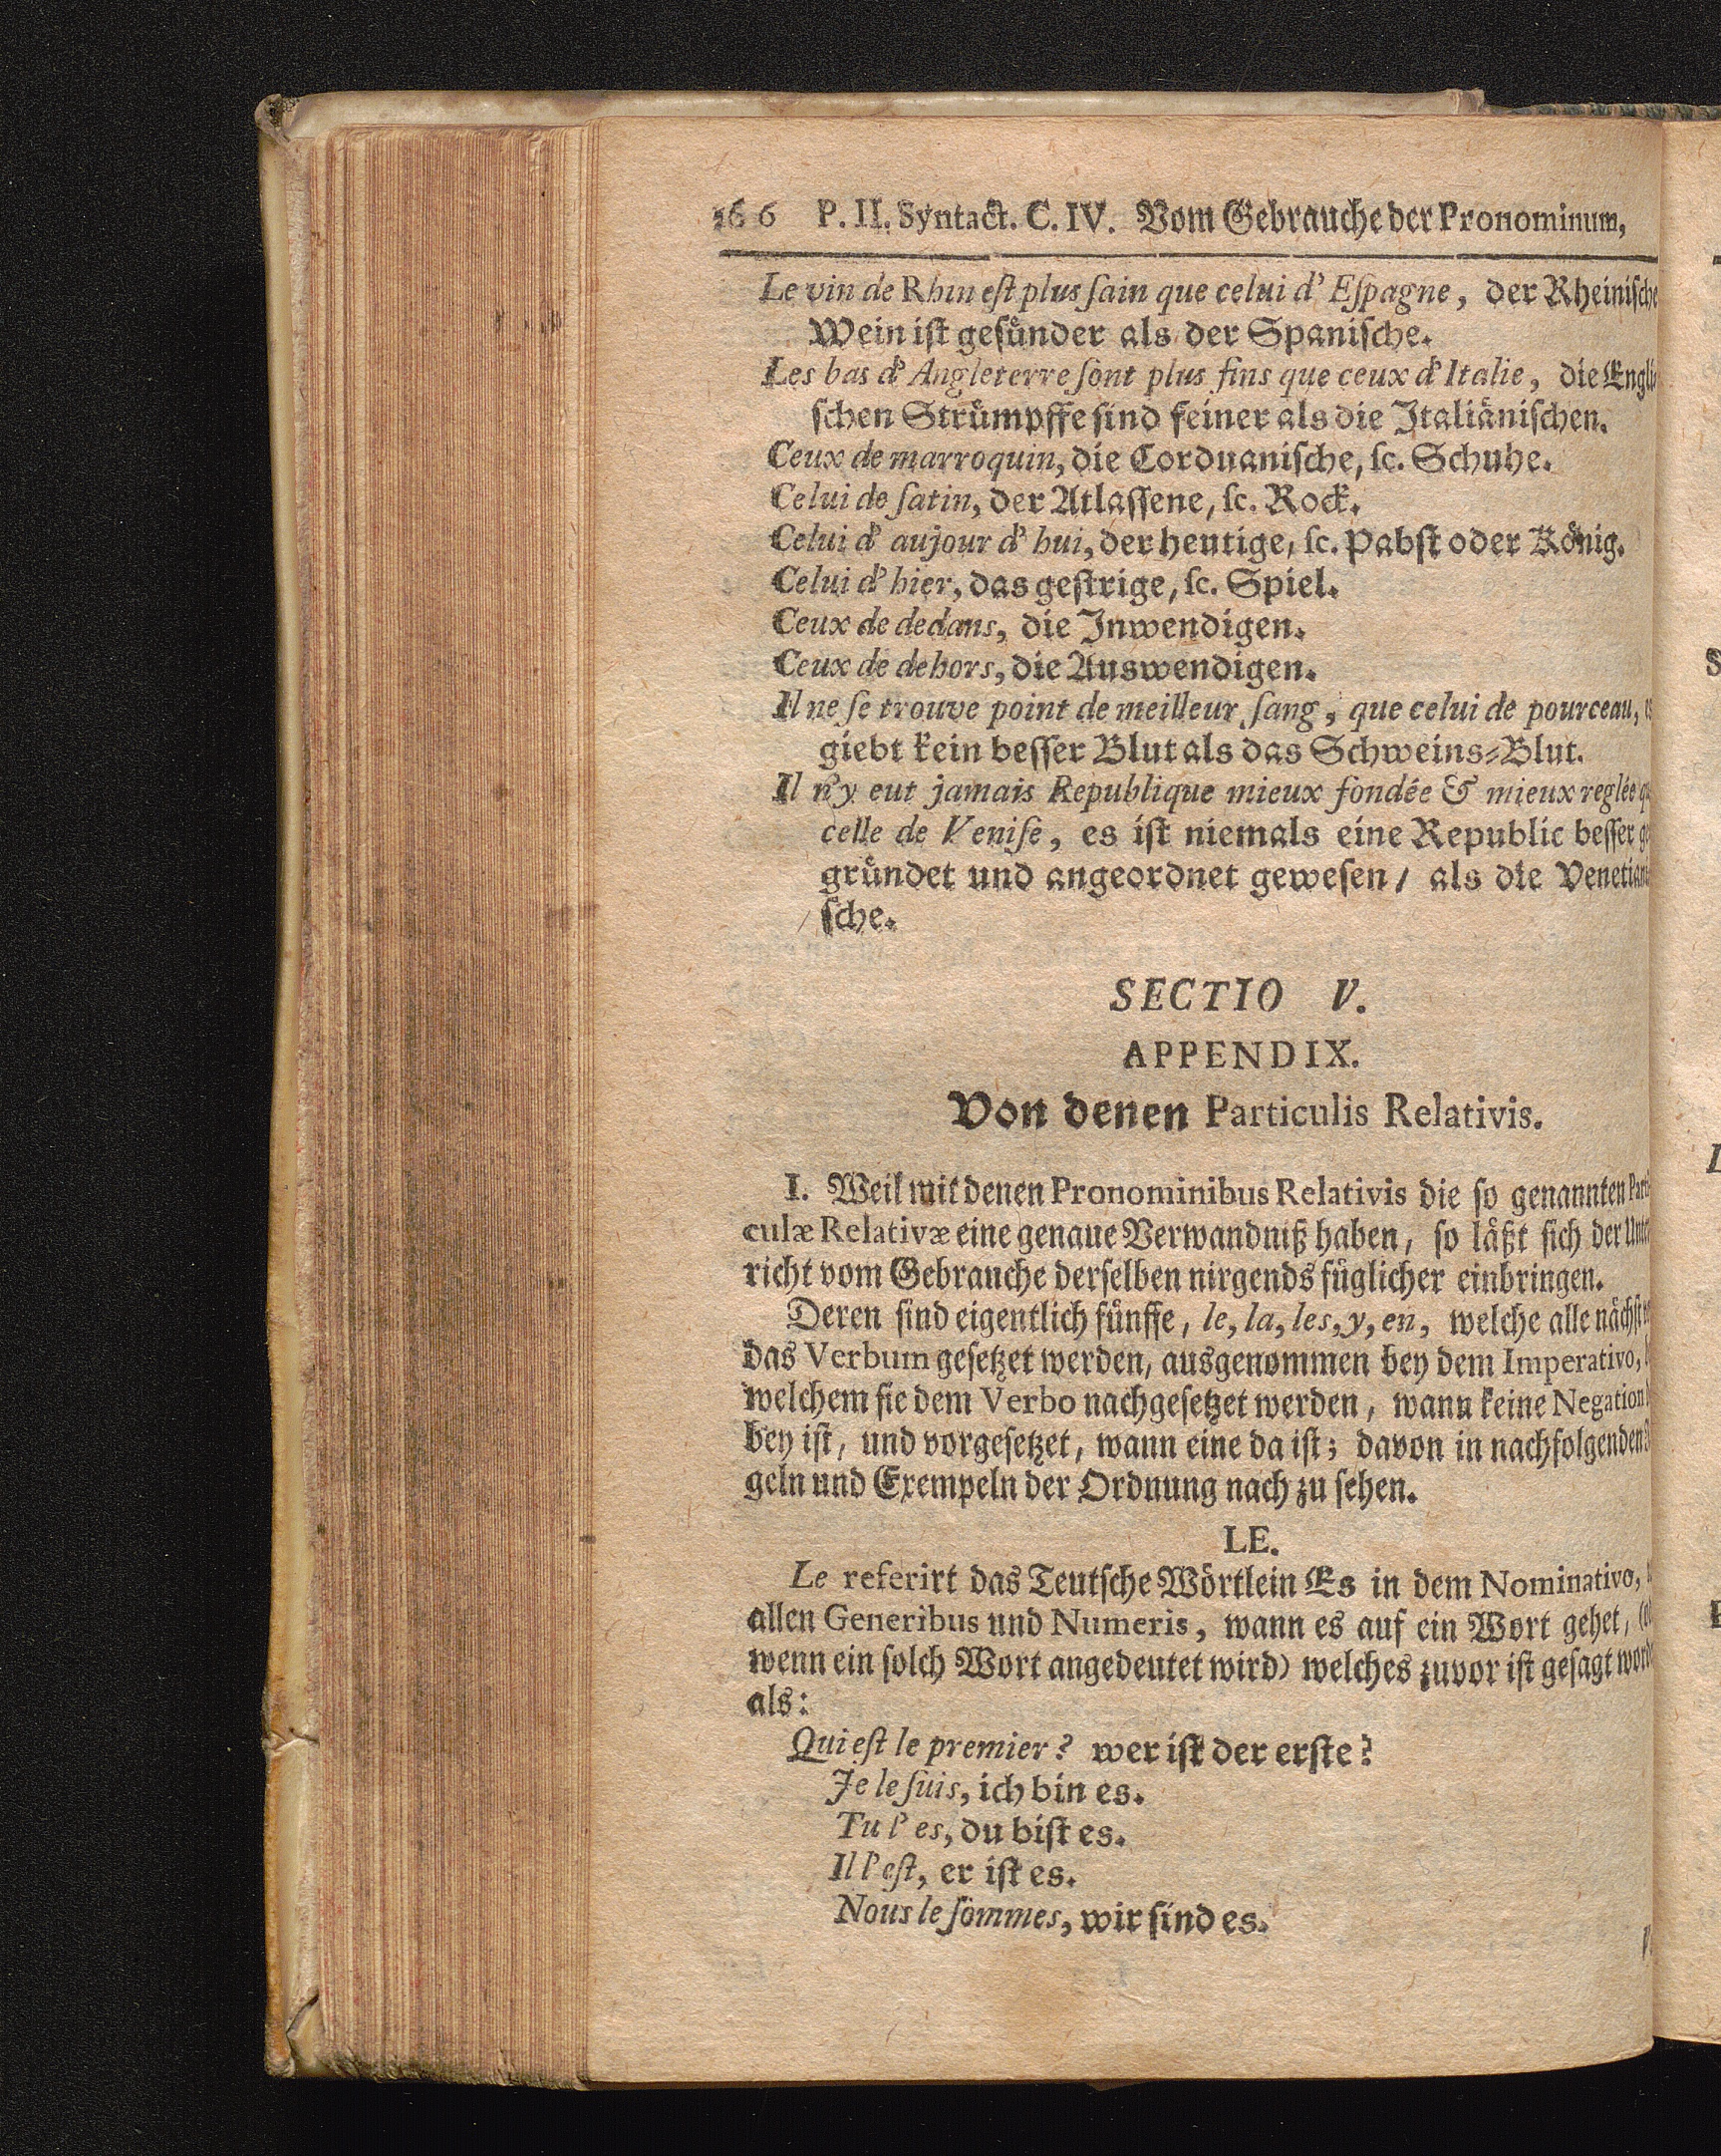 166 P. II. Syntact. C. IV. Vom Gebrauche der Pronominum,
Le vin de Rhin eſt plus ſain que celui d' Eſpagne, der Rheiniſche
Wein iſt geſuͤnder als der Spaniſche.
Les bas d' Angleterre ſont plus fins que ceux d' Italie, die Engli-
ſchen Struͤmpffe ſind feiner als die Italiaͤniſchen.
Ceux de marroquin, die Corduaniſche, ſc. Schuhe.
Celui de ſatin, der Atlaſſene, ſc. Rock.
Celui d' aujour d' hui, der heutige, ſc. Pabſt oder Koͤnig.
Celui d' hier, das geſtrige, ſc. Spiel.
Ceux de dedans, die Inwendigen.
Ceux de dehors, die Auswendigen.
Il ne ſe trouve point de meilleur ſang, que celui de pourceau, es
giebt kein beſſer Blut als das Schweins-Blut.
Il n'y eut jamais Republique mieux fondée & mieux reglée
celle de Veniſe, es iſt niemals eine Republic beſſer
gruͤndet und angeordnet geweſen / als die Venetiani
ſche.
SECTIO V.
APPENDIX.
Von denen Particulis Relativis.
I. Weil mit denen Pronominibus Relativis die ſo genannten Parti
culæ Relativæ eine genaue Verwandniß haben, ſo laͤßt ſich der Unter
richt vom Gebrauche derſelben nirgends fuͤglicher einbringen.
Deren ſind eigentlich fuͤnffe, le, la, les, y, en, welche alle naͤchſt
das Verbum geſetzet werden, ausgenommen bey dem Imperativo,
welchem ſie dem Verbo nachgeſetzet werden, wann keine Negation
bey iſt, und vorgeſetzet, wann eine da iſt; davon in nachfolgenden
geln und Exempeln der Ordnung nach zu ſehen.
LE.
Le referirt das Teutſche Woͤrtlein Es in dem Nominativo,
allen Generibus und Numeris, wann es auf ein Wort gehet,
wenn ein ſolch Wort angedeutet wird) welches zuvor iſt geſagt worde
als:
Qui eſt le premier? wer iſt der erſte?
Je le ſuis, ich bin es.
Tu l' es, du biſt es.
Il l' eſt, er iſt es.
Nous le ſommes, wir ſind es.